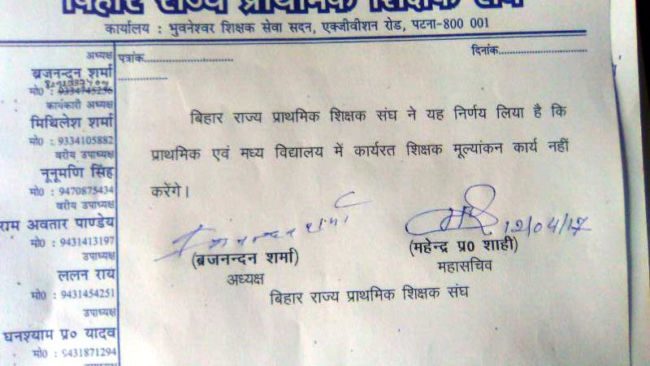 बिहार राज्य प्राथमिक शिक्षक संघ
कार्यालय : भुवनेश्वर शिक्षक सेवा सदन, एक्जीवीशन रोड, पटना-800 001
पत्रांक
दिनांक
अध्यक्ष
ब्रजनन्दन शर्मा
मो0 :
कार्यकारी अध्यक्ष
मिथिलेश शर्मा
मो0 : 9334105882
वरीय उपाध्यक्ष
नूनूमणि सिंह
मो0 : 9470875434
वरीय उपाध्यक्ष
राम अवतार पाण्डेय
मो0 : 9431413197
उपाध्यक्ष
ललन राय
मो0 : 9431454251
उपाध्यक्ष
घनश्याम प्र० यादव
मो0 : 9431871294
उपाध्यक्ष
बिहार राज्य प्राथमिक शिक्षक संघ ने यह निर्णय लिया है कि
प्राथमिक एवं मध्य विद्यालय में कार्यरत शिक्षक मूल्यांकन कार्य नहीं
करेंगे।
ब्रजनन्दन शर्मा
12/04/17
(ब्रजनन्दन शर्मा)
(महेन्द्र प्र० शाही)
अध्यक्ष
महासचिव
बिहार राज्य प्राथमिक शिक्षक संघ